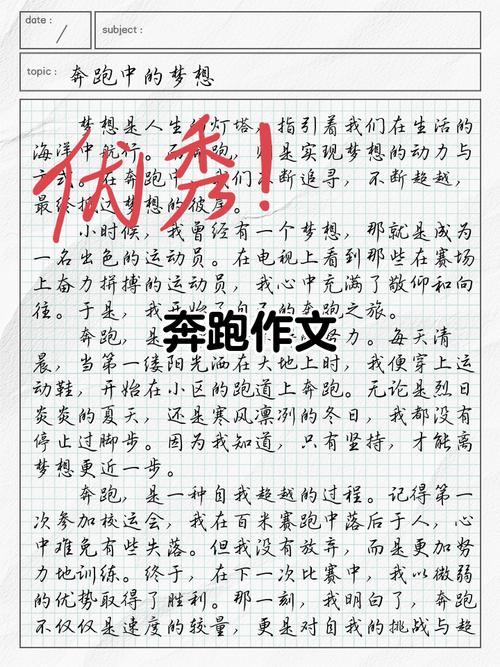 date :
subject :
topic : 奔跑中的梦想
梦想是人生 灯塔，指引着我们在生活的
海洋中航行。 跑， 是实现梦想的动力与
方式。在奔跑中 我们不断追寻，不断超越，
最终抵达梦想的彼岸。
优秀！
小时候，我曾经有一个梦想，那就是成为
一名出色的运动员。在电视上看到那些在赛场
上奋力拼搏的运动员，我心中充满了敬仰和向
往。于是，我开始了自己的奔跑之旅。
奔跑作文
奔跑，是 努力。每天清
晨，当第一缕阳光洒在大地上时，我便穿上运
动鞋，开始在小区的跑道上奔跑。无论是烈日
炎炎的夏天，还是寒风凛冽的冬日，我都没有
停止过脚步。因为我知道，只有坚持，才能离
梦想更近一步。
奔跑，是一种自我超越的过程。记得第一
次参加校运会，我在百米赛跑中落后于人，心
中难免有些失落。但我没有放弃，而是更加努
力地训练。终于，在下一次比赛中，我以微弱
的优势取得了胜利。那一刻，我明白了，奔跑
不仅仅是速度的较量，更是对自我的挑战与超